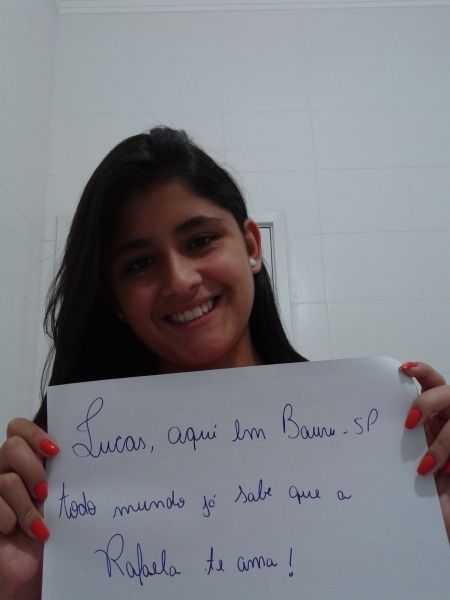 Lucas, aqui em Bauru-SP
todo mundo já sabe que a
Rafaela te ama!